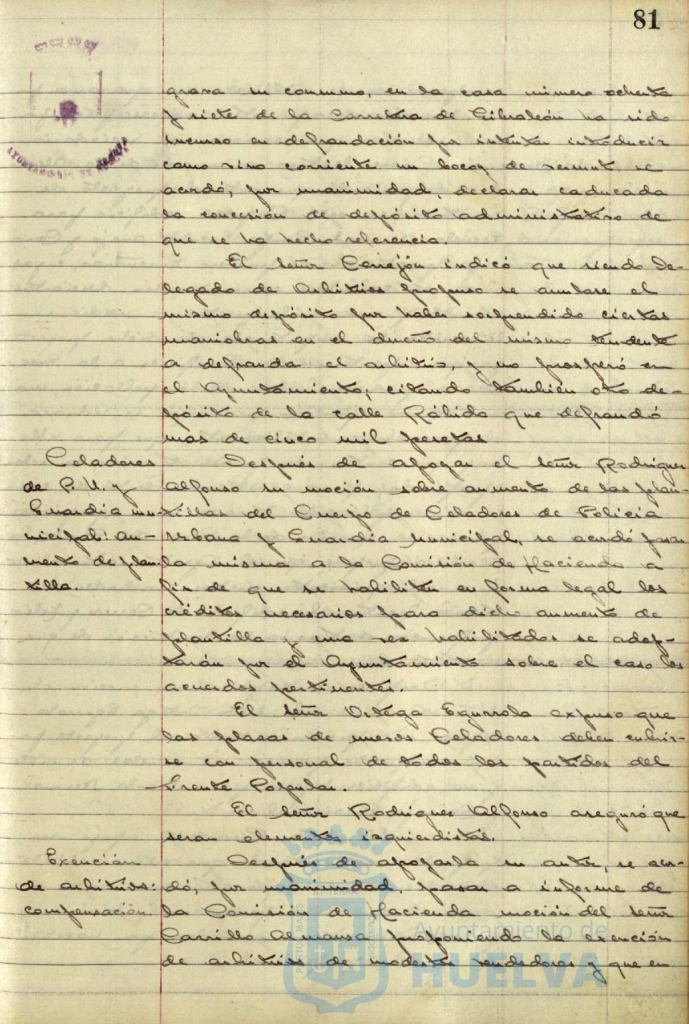 81
grava su consumo, en la casa número ochenta
y siete de la Carretera de Gibraleón ha sido
incurso en defraudación por intentar introducir
como vino corriente un bocoy de vermut, se
acordó, por unanimidad, declarar caducada
la concesión de depósito administrativo de
que se ha hecho referencia.
El Señor Cerrejón indicó que siendo De-
legado de Arbitrios propuso se anulase el
mismo depósito por haber sorprendido ciertas
maniobras en el dueño del mismo tendente
a defrauda el arbitrio, y no prosperó en
el Ayuntamiento; citando también otro de-
pósito de la calle Rábida que defraudó
mas de cinco mil pesetas
Celadores
de P. U. y
Guardia mu-
nicipal: au-
mento de plan-
tilla.
Después de apoyar el Señor Rodríguez
Alfonso su moción sobre aumento de las plan-
tillas del Cuerpo de Celadores de Policía
Urbana y Guardia Municipal, se acordó pasar
la misma a la Comisión de Hacienda a
fin de que se habiliten en forma legal los
créditos necesarios para dicho aumento de
plantilla y una vez habilitados se adop-
tarán por el Ayuntamiento sobre el caso los
acuerdos pertinentes.
El Señor Ortega Egurrola expuso que
las plazas de nuevos Celadores deben cubrir-
se con personal de todos los partidos del
Frente Popular.
El Señor Rodríguez Alfonso aseguró que
seran elementos izquierdistas.
Exención
de arbitrios:
compensación
Después de apoyarla su autor, se acor-
dó, por unanimidad, pasar a informe de
la Comisión de Hacienda moción del Señor
Carrillo Almansa proponiendo la exención
de arbitrios de modestos vendedores y que en
Ayuntamiento de
HUELVA